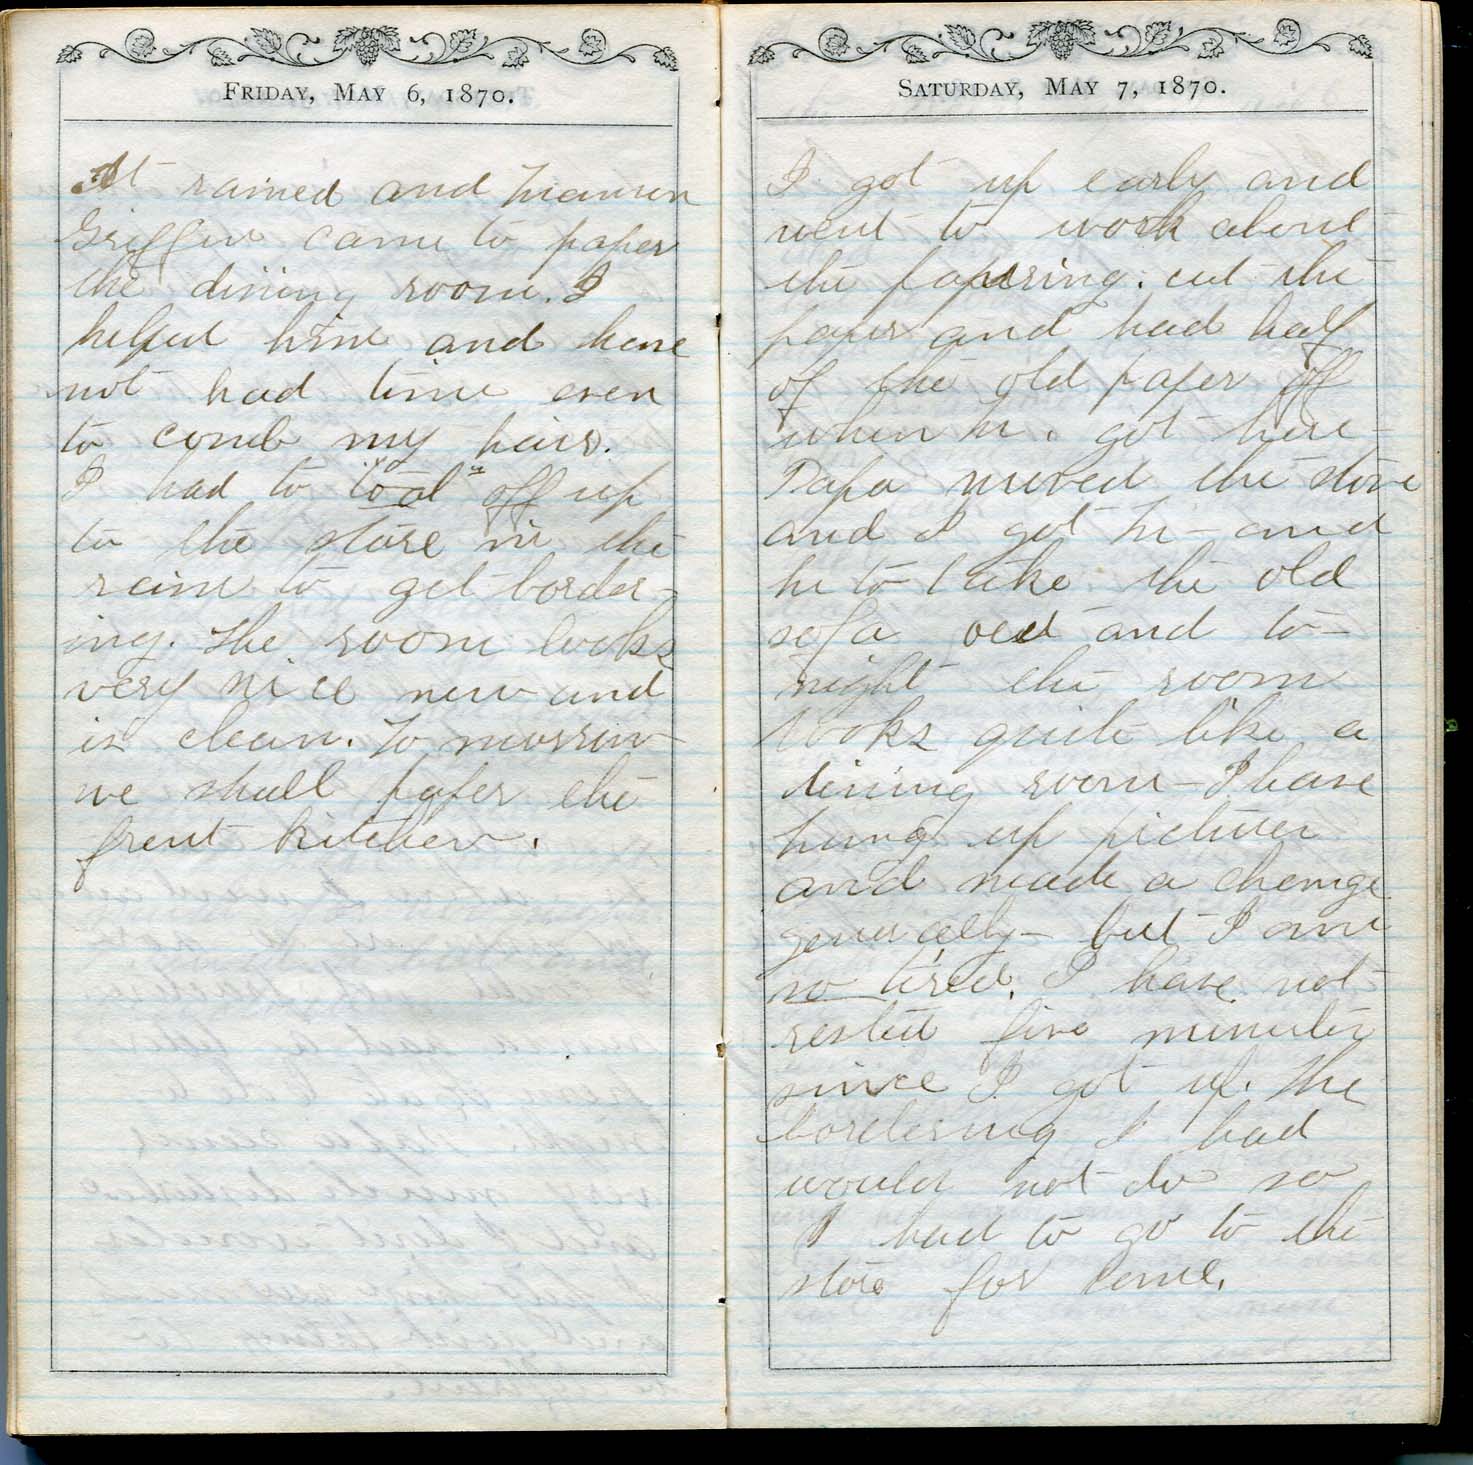 FRIDAY, MAY 6, 1870.
It rained and Hiamen
Griffin came to paper
the dining room. I
helped him and have
not had time even
to comb my hair.
I had to "toal" off up
to the store in the
rain to get border-
ing. The room looks
very nice now and
is clean. To morrow
we shall paper the
front kitchen.
SATURDAY, MAY 7, 1870.
I got up early and
went to work about
the papering. cut the
paper and had half
of the old paper off
when H. got here-
Papa moved the stove
and I got hi- and
he to take the old
sofa out and to-
night the room
looks quite like a
dining room - I have
hung up pictures
and made a change
generally - but I am
so tired. I have not
rested five minutes
since I got up. The
bordering I had
would not do so
I had to go to the
store for some.